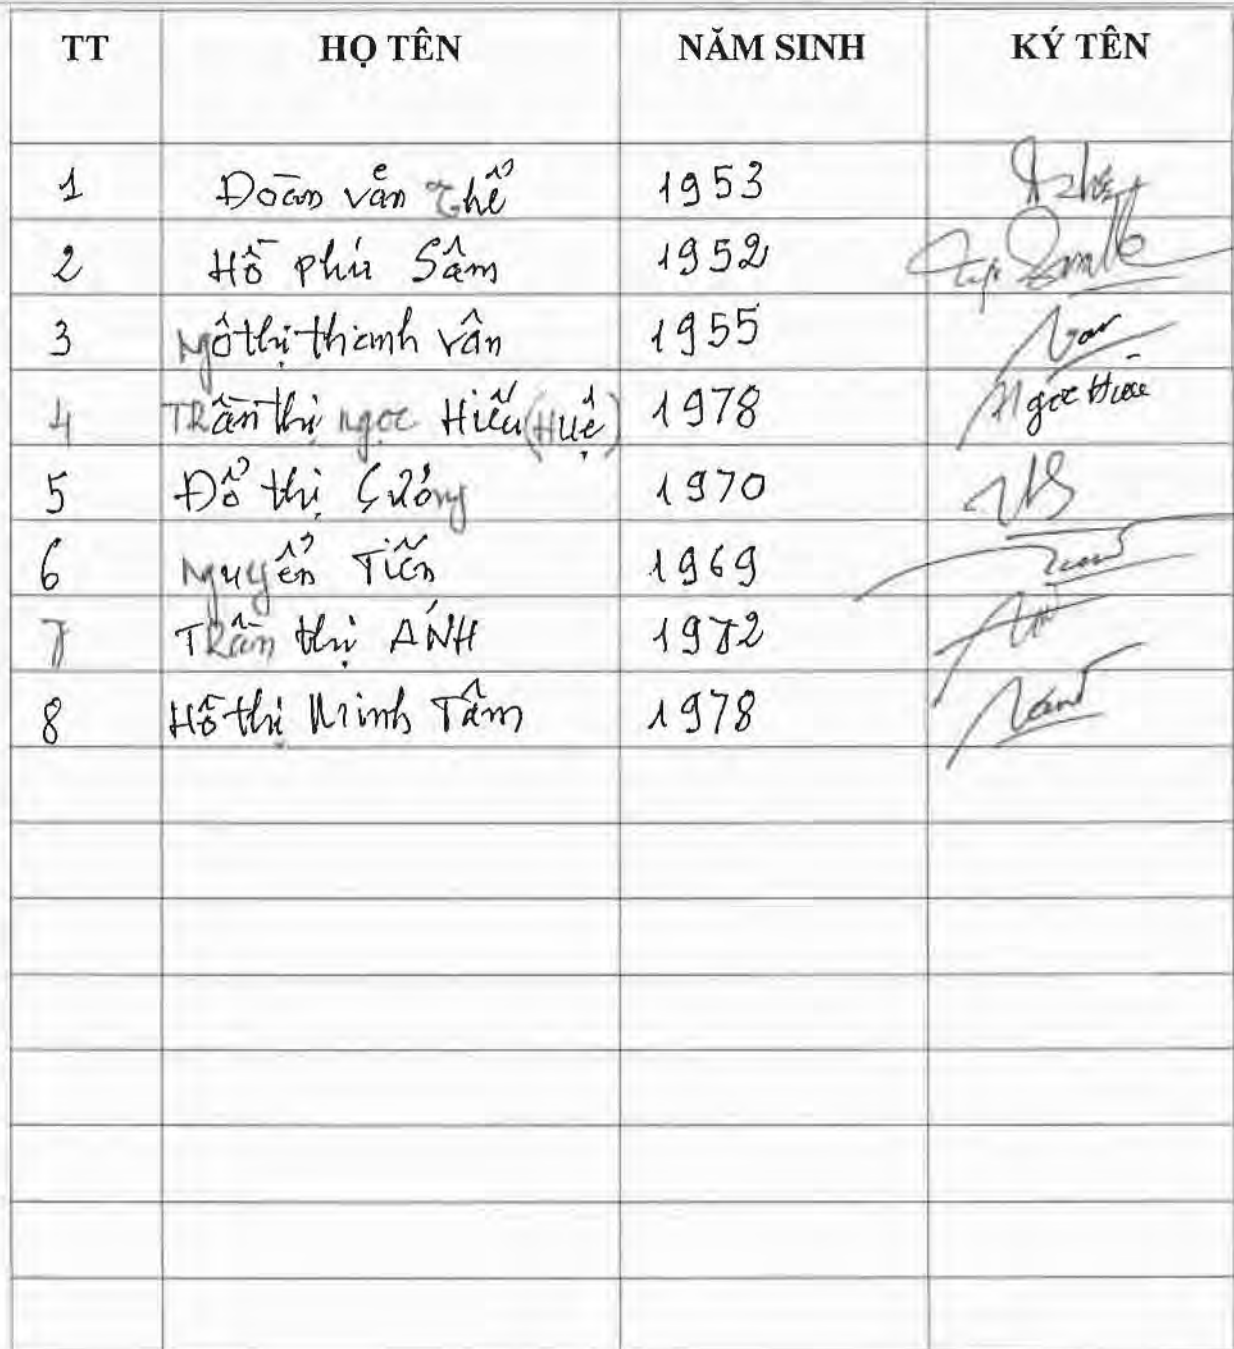 TT HỌ TÊN NĂM SINH KÝ TÊN
1 Đoàn văn Thể 1953
2 Hồ phú Sâm 1952
3 Ngô thị thanh Vân 1955
4 Trần thị ngọc Hiếu (Huệ) 1978 Ngọc Hiếu
5 Đỗ thị 1970
6 Nguyễn Tiến 1969
7 Trần thị ÁNH 1972
8 Hồ thị Minh Tâm 1978